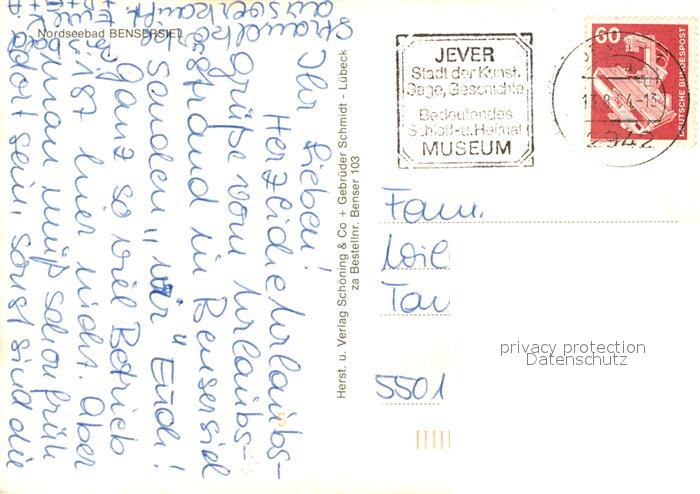 Nordseebad BENSERSIEL
Ihr Lieben!
Herzliche Urlaubs-
grüße vom Urlaubs-
strand in Bensersiel
senden wir Euch!
Ganz so viel Betrieb
ist hier nicht. Aber
man muß schon früh
dort sein, sonst sind die
Strandkö
ausverkauft.
Herst. u. Verlag Schöning & Co + Gebrüder Schmidt - Lübeck
za Bestellnr. Benser 103
JEVER
Stadt der Kunst,
Sage, Geschichte
Bedeutendes
Schloß-u. Heimat
MUSEUM
2942
60
DEUTSCHE BUNDESPOST
Fam.
Wil
Tau
5501
privacy protection
Datenschutz